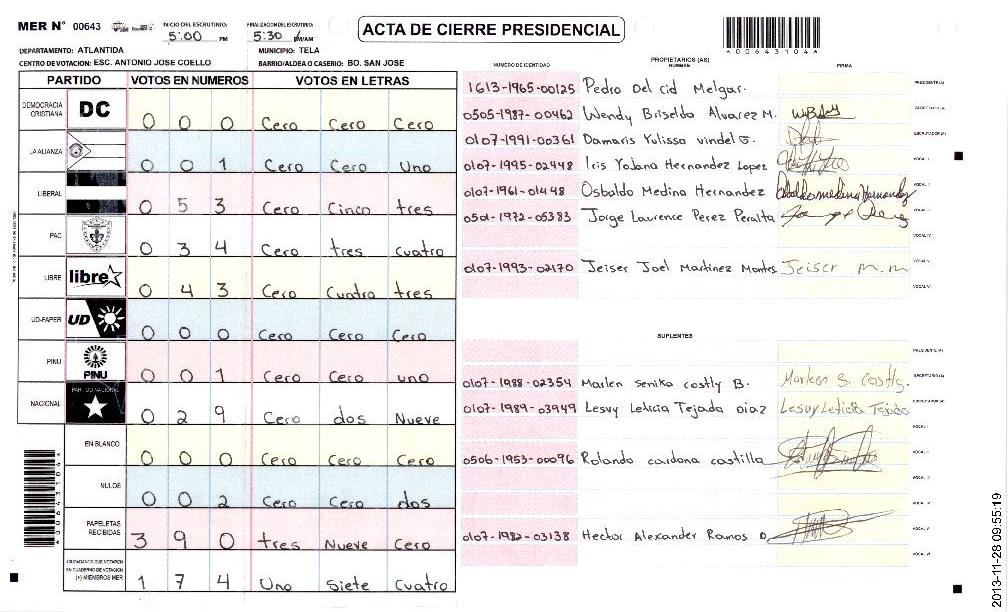 MER N° 00643
INICIO DEL ESCRUTINIO: 5:00 PM
FINALIZACION DEL ESCRUTINIO: 5:30 PM/AM
ACTA DE CIERRE PRESIDENCIAL
*00643104*
DEPARTAMENTO: ATLANTIDA
MUNICIPIO: TELA
CENTRO DE VOTACION: ESC. ANTONIO JOSE COELLO
BARRIO/ALDEA O CASERIO: BO. SAN JOSE
PARTIDO VOTOS EN NUMEROS VOTOS EN LETRAS
DEMOCRACIA CRISTIANA DC 0 0 0 Cero Cero Cero
LA ALIANZA 0 0 1 Cero Cero Uno
LIBERAL 0 5 3 Cero Cinco tres
PAC 0 3 4 Cero tres Cuatro
LIBRE libre 0 4 3 Cero Cuatro tres
UD-FAPER UD 0 0 0 Cero Cero Cero
PINU PINU 0 0 1 Cero Cero uno
NACIONAL PARTIDO NACIONAL 0 2 9 Cero dos Nueve
EN BLANCO 0 0 0 Cero Cero Cero
NULOS 0 0 2 Cero Cero dos
PAPELETAS RECIBIDAS 3 9 0 tres Nueve Cero
CIUDADANOS QUE VOTARON EN CUADERNO DE VOTACION (+) MIEMBROS MER 1 7 4 Uno Siete Cuatro
*00643104*
PROPIETARIOS (AS)
NUMERO DE IDENTIDAD NOMBRE FIRMA
1613-1965-00125 Pedro Del cid Melgar. PRESIDENTE (A)
0505-1987-00462 Wendy Briselda Alvarez M. SECRETARIO (A)
0107-1991-00361 Damaris Yulissa vindel G. ESCRUTADOR (A)
0107-1995-02448 Iris Yojana Hernandez Lopez VOCAL I
0107-1961-01448 Osbaldo Medina Hernandez Osbaldo medina Hernandez VOCAL II
0501-1972-05383 Jorge Laurence Perez Peralta VOCAL III
VOCAL IV
0107-1993-02170 Jeiser Joel Martinez Montes Jeiser m.m VOCAL V
VOCAL VI
SUPLENTES
PRESIDENTE (A)
0107-1988-02354 Marlen Senika costly B. Marlen S. Costly. SECRETARIO (A)
0107-1989-03949 Lesvy Leticia Tejada Diaz Lesvy Leticia Tejada ESCRUTADOR (A)
VOCAL I
0506-1953-00096 Rolando cardona castilla VOCAL II
VOCAL III
VOCAL IV
0107-1982-03138 Hector Alexander Ramos D. VOCAL V
VOCAL VI
2013-11-28 09:55:19